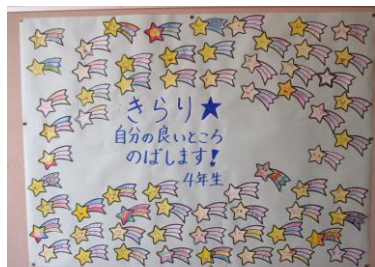 きらり★
自分の良いところ
のばします!
4年生